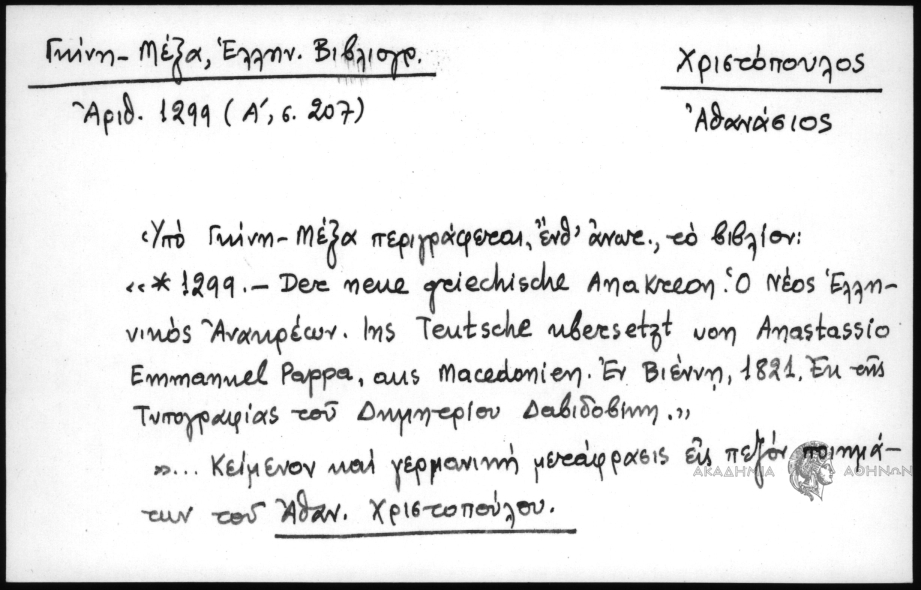 Γκίνη - Μέξα, Ἑλλην. Βιβλιογρ.
Ἀριθ. 1299 (Α΄, σ. 207)
Χριστόπουλος
Ἀθανάσιος
Ὑπό Γκίνη - Μέξα περιγράφεται, ἔνθ' ἀνωτ., τό βιβλίον:
«* 1299. — Der neue griechische Anakreon. Ὁ Νέος Ἑλλη-
νικὸς Ἀνακρέων. Ins Teutsche ubersetzt von Anastassio
Emmanuel Pappa, aus Macedonien. Ἐν Βιέννῃ, 1821. Ἐκ τῆς
Τυπογραφίας τοῦ Δημητρίου Δαβιδοβίκη.»
»... Κείμενον καί γερμανική μετάφρασις εἰς πεζόν ποιημά-
των τοῦ Ἀθαν. Χριστοπούλου.
ΑΚΑΔΗΜΙΑ ΑΘΗΝΩΝ